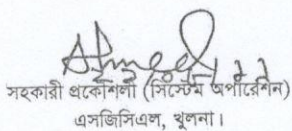 সহকারী প্রকৌশলী (সিস্টেম অপারেশন)
এসজিসিএল, খুলনা।